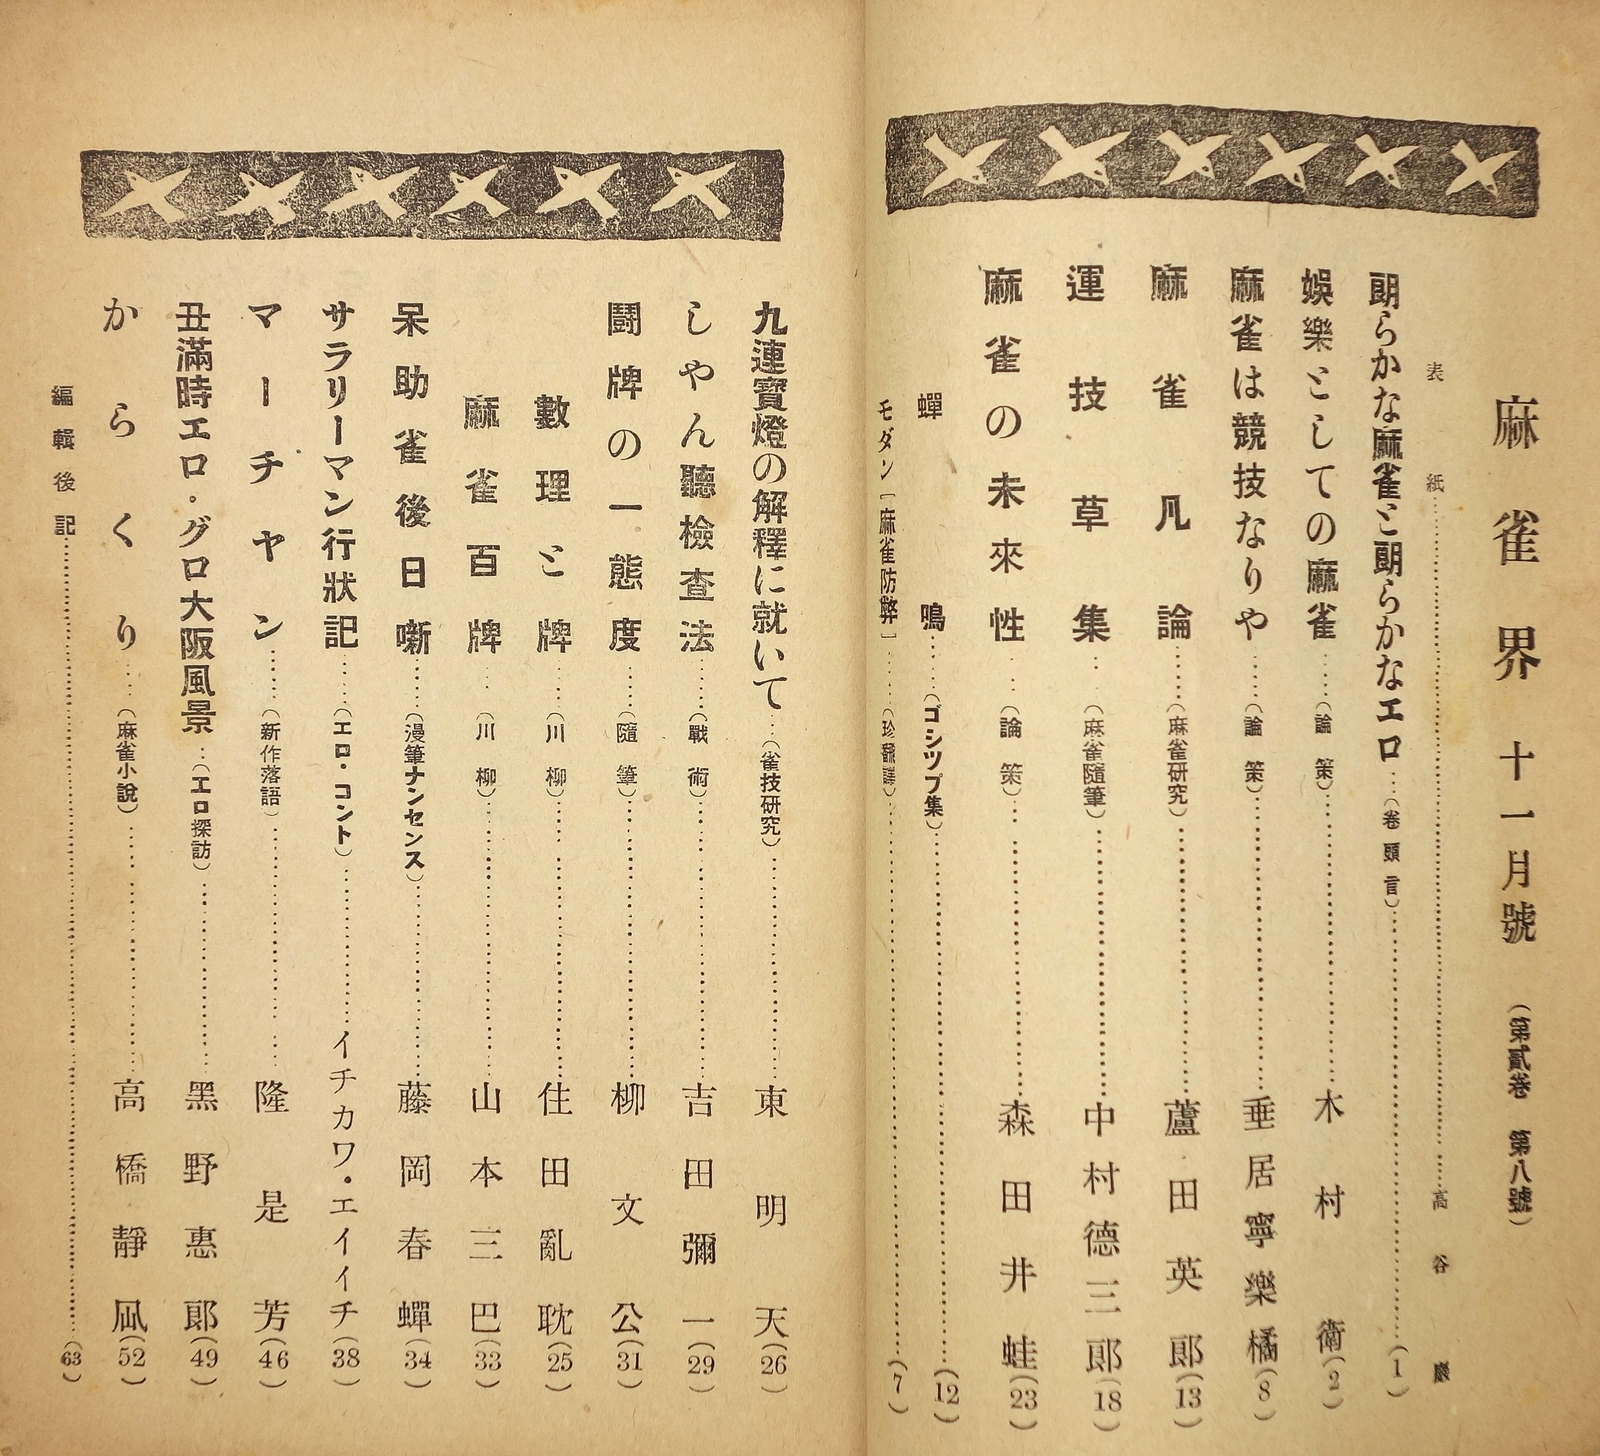 麻雀界 十一月號 （第貳卷 第八號）
表紙……高谷
朗らかな麻雀と朗らかなエロ……（卷頭言）……（1）
娯樂としての麻雀……（論策）……木村衛（2）
麻雀は競技なりや……（論策）……垂居寧樂橘（8）
麻雀凡論……（麻雀研究）……蘆田英郎（13）
運技草集……（麻雀隨筆）……中村德三郎（18）
麻雀の未來性……（論策）……森田井蛙（23）
蟬鳴……（ゴシツプ集）……（12）
モダン［麻雀防弊］……（珍飜譯）……（7）
九連寶燈の解釋に就いて……（雀技研究）……東明天（26）
しやん聽檢查法……（戰術）……吉田彌一（29）
鬪牌の一態度……（隨筆）……柳文公（31）
數理と牌……（川柳）……住田亂耽（25）
麻雀百牌……（川柳）……山本三巴（33）
呆助雀後日噺……（漫筆ナンセンス）……藤岡春蟬（34）
サラリーマン行狀記……（エロ・コント）……イチカワ・エイイチ（38）
マーチヤン……（新作落語）……隆是芳（46）
丑滿時エロ・グロ大阪風景……（エロ探訪）……黑野惠郎（49）
からくり……（麻雀小說）……高橋靜凪（52）
編輯後記……（63）